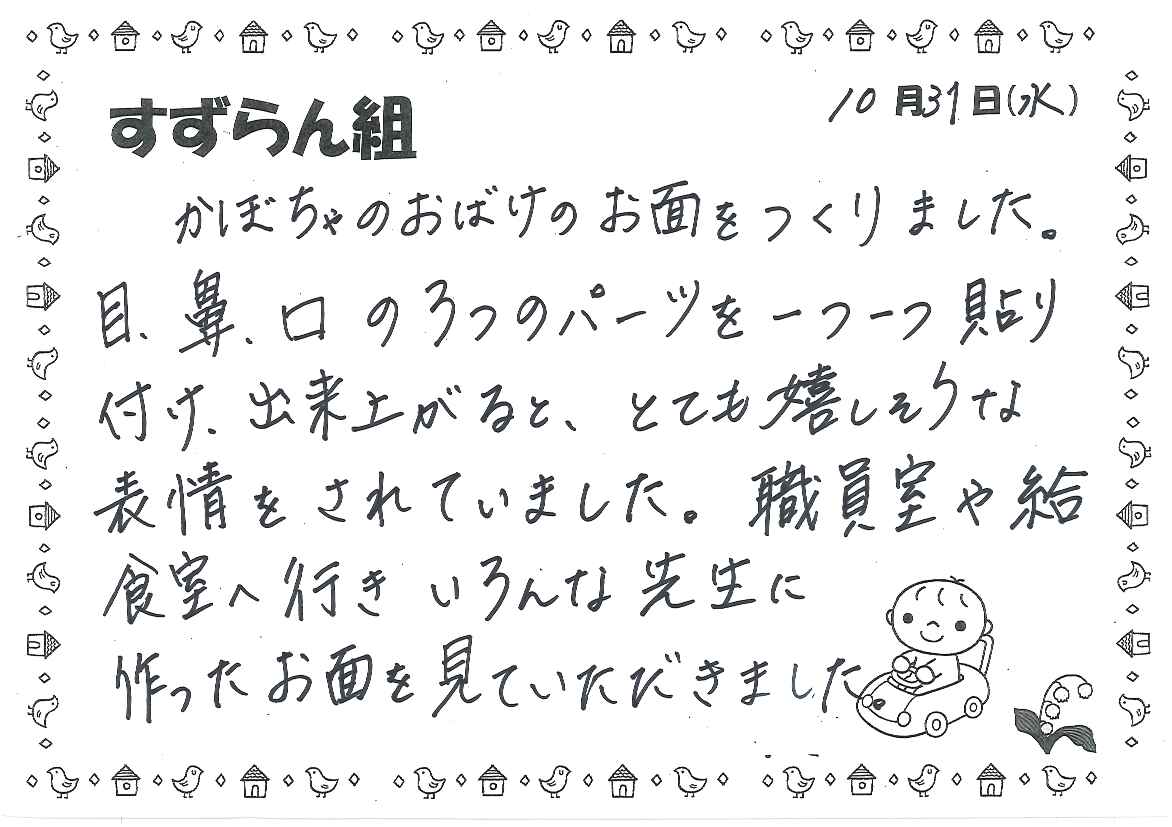 すずらん組
10月31日(水)
かぼちゃのおばけのお面をつくりました。
目、鼻、口の3つのパーツを一つ一つ貼り
付け、出来上がると、とても嬉しそうな
表情をされていました。職員室や給
食室へ行きいろんな先生に
作ったお面を見ていただきました。